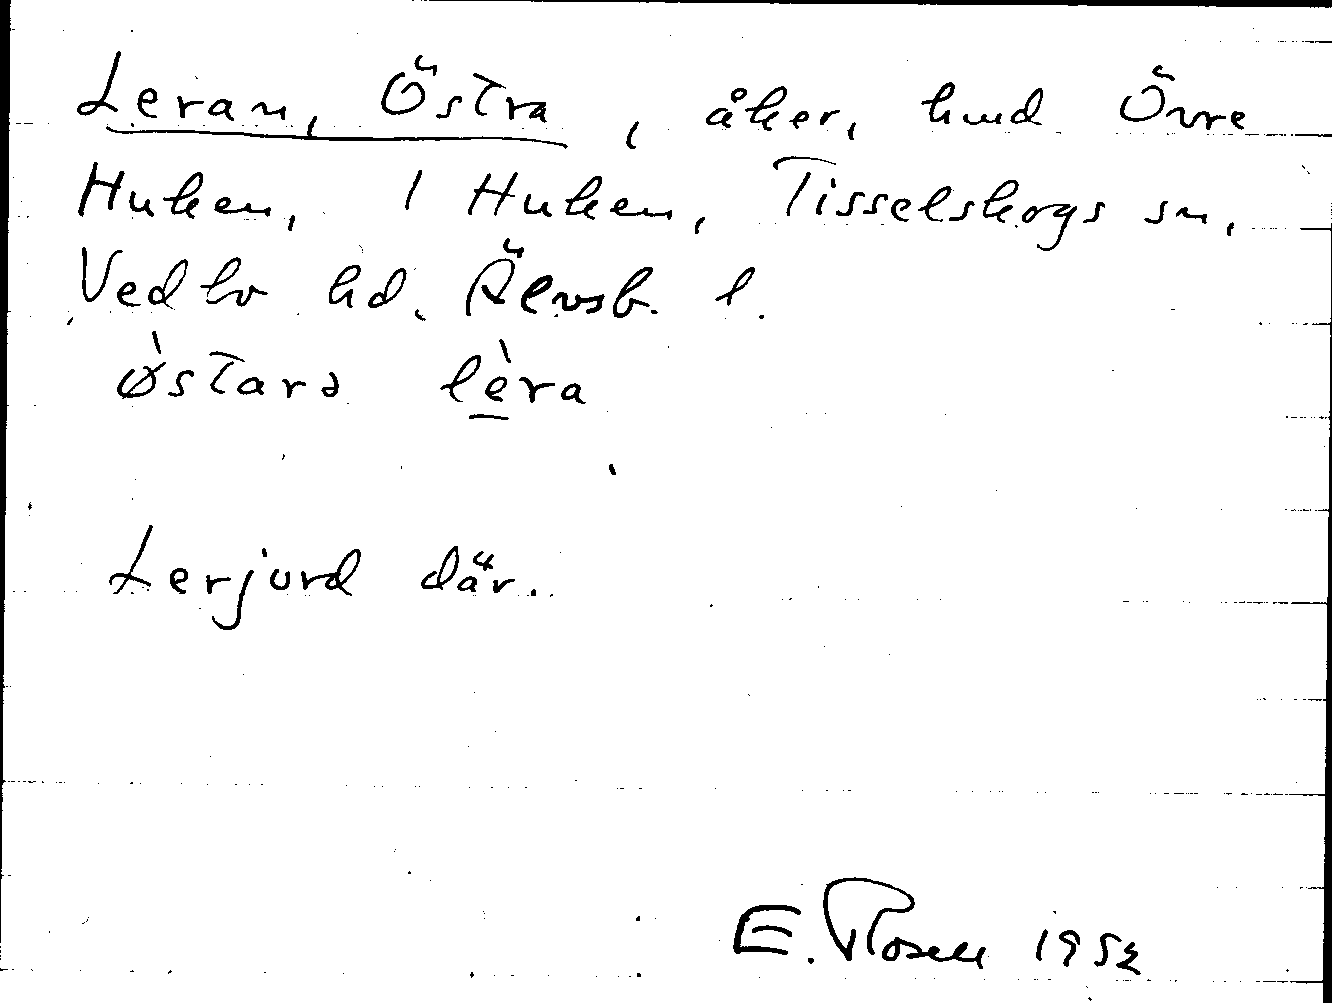 Leran, Östra, åker, hmd Övre
Huken, 1 Huken, Tisselskogs sn,
Vedbo hd. Älvsb. l.
ø̀starə lè̠ra
Lerjord där.
E. Rosell 1952